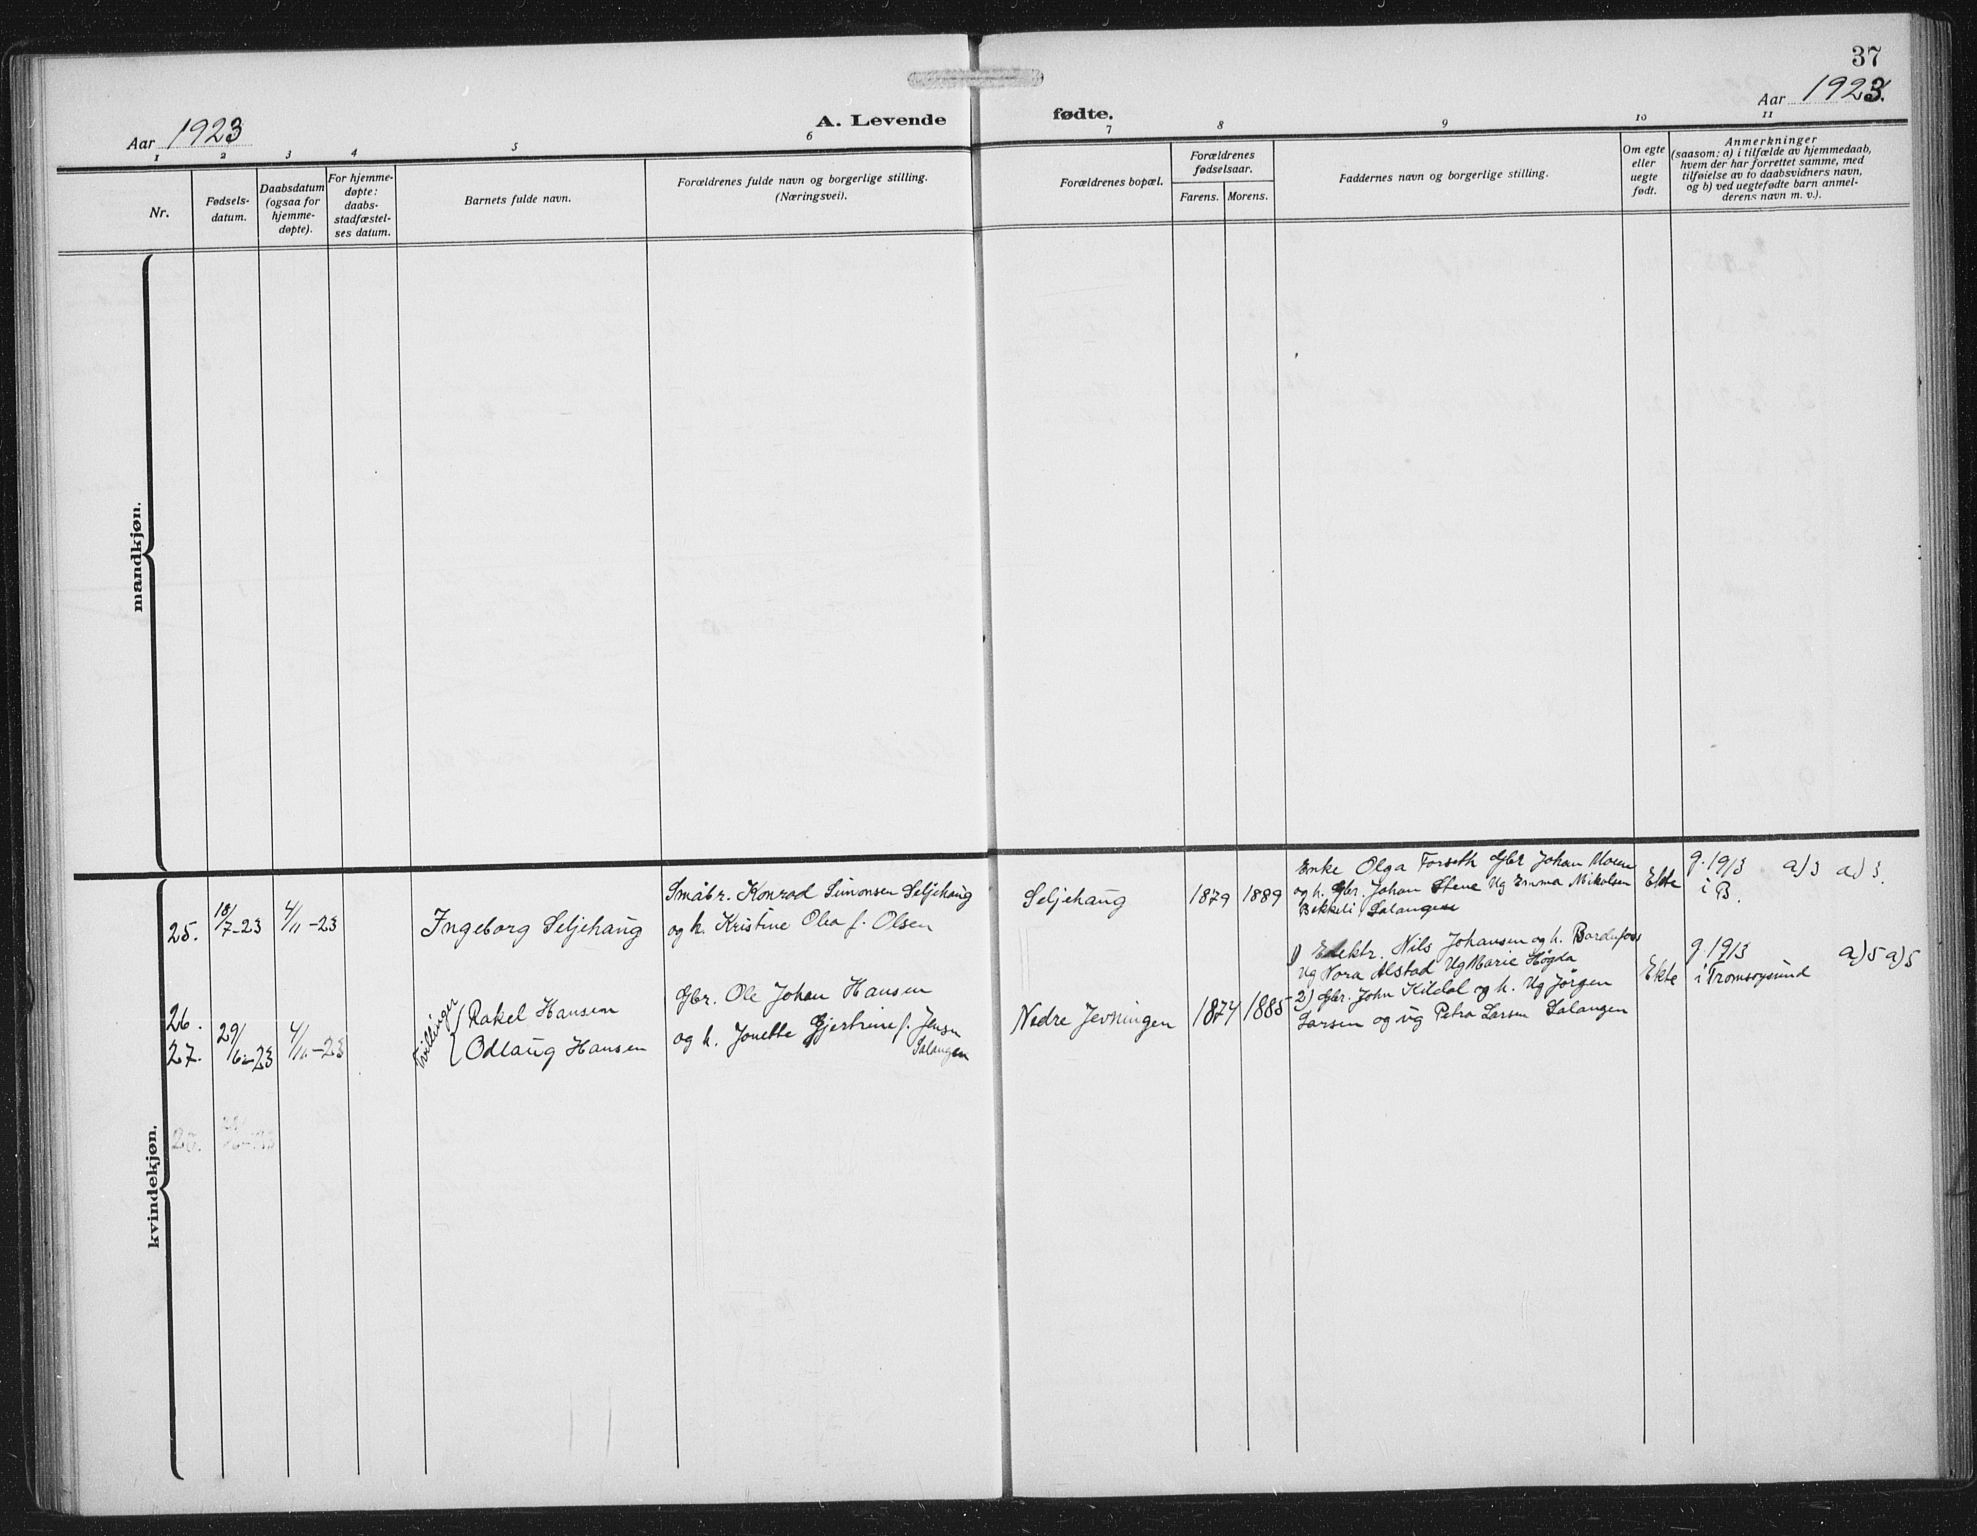 37
Aar 1923
A. Levende fødte.
Aar 1923.
1 2 3 4 5 6 7 8 9 10 11
Nr.
Fødsels-
datum.
Daabsdatum
(ogsaa for
hjemme-
døpte).
For hjemme-
døpte:
daabs-
stadfæstel-
ses datum.
Barnets fulde navn.
Forældrenes fulde navn og borgerlige stilling.
(Næringsvei).
Forældrenes bopæl.
Forældrenes
fødselsaar.
Farens. Morens.
Faddernes navn og borgerlige stilling.
Om egte
eller
uegte
født.
Anmerkninger
(saasom: a) i tilfælde av hjemmedaab,
hvem der har forrettet samme, med
tilføielse av to daabsvidners navn,
og b) ved uegtefødte barn anmel-
derens navn m. v.).
mandkjøn.
kvindekjøn.
25.
18/7-23
4/11-23
Ingeborg Seljehaug
Småbr. Konrad Simonsen Seljehaug
og h. Kristine Olea f. Olsen
Seljehaug
1879
1889
Enke Olga Forseth Gbr Johan Moene
og h. Gbr. Johan Stene Ug Emma Nikolsen
Bekkeli Salangen
Ekte
g. 1913 a)3 a)3.
i B.
26.
27.
29/6-23
4/11-23
Tvillinger
Rakel Hansen
Odlaug Hansen
Gbr. Ole Johan Hansen
og h. Jonette Gjertrine f. Jensn
Salangen
Nedre Jevningen
1874
1885
1) Elektr. Nils Johansen og h. Bardufoss
Ug Nora Alstad Ug Marie Høgda
2) Gbr. John Kildal og h. Ug Jørgen
Larsen og ug Petra Larsen Salangen
Ekte
g. 1913 a)5 a)5
i Tromsøysund